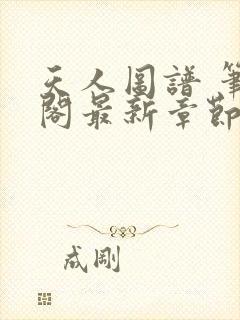 天人圖譜 筆
閣最新章節
成剛